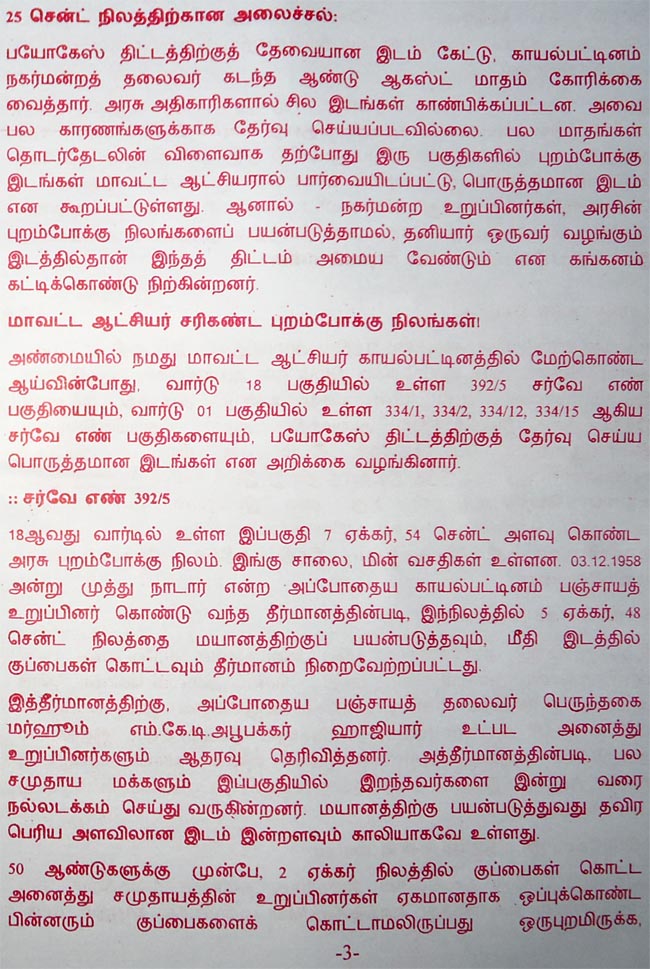 25 சென்ட் நிலத்திற்கான அலைச்சல்:
பயோகேஸ் திட்டத்திற்குத் தேவையான இடம் கேட்டு, காயல்பட்டினம்
நகர்மன்றத் தலைவர் கடந்த ஆண்டு ஆகஸ்ட் மாதம் கோரிக்கை
வைத்தார். அரசு அதிகாரிகளால் சில இடங்கள் காண்பிக்கப்பட்டன. அவை
பல காரணங்களுக்காக தேர்வு செய்யப்படவில்லை. பல மாதங்கள்
தொடர்தேடலின் விளைவாக தற்போது இரு பகுதிகளில் புறம்போக்கு
இடங்கள் மாவட்ட ஆட்சியரால் பார்வையிடப்பட்டு, பொருத்தமான இடம்
என கூறப்பட்டுள்ளது. ஆனால் - நகர்மன்ற உறுப்பினர்கள், அரசின்
புறம்போக்கு நிலங்களைப் பயன்படுத்தாமல், தனியார் ஒருவர் வழங்கும்
இடத்தில்தான் இந்தத் திட்டம் அமைய வேண்டும் என கங்கனம்
கட்டிக்கொண்டு நிற்கின்றனர்.
மாவட்ட ஆட்சியர் சரிகண்ட புறம்போக்கு நிலங்கள்!
அண்மையில் நமது மாவட்ட ஆட்சியர் காயல்பட்டினத்தில் மேற்கொண்ட
ஆய்வின்போது, வார்டு 18 பகுதியில் உள்ள 392/5 சர்வே எண்
பகுதியையும், வார்டு 01 பகுதியில் உள்ள 334/1, 334/2, 334/12, 334/15 ஆகிய
சர்வே எண் பகுதிகளையும், பயோகேஸ் திட்டத்திற்குத் தேர்வு செய்ய
பொருத்தமான இடங்கள் என அறிக்கை வழங்கினார்.
:: சர்வே எண் 392/5
18ஆவது வார்டில் உள்ள இப்பகுதி 7 ஏக்கர், 54 சென்ட் அளவு கொண்ட
அரசு புறம்போக்கு நிலம். இங்கு சாலை, மின் வசதிகள் உள்ளன. 03.12.1958
அன்று முத்து நாடார் என்ற அப்போதைய காயல்பட்டினம் பஞ்சாயத்
உறுப்பினர் கொண்டு வந்த தீர்மானத்தின்படி, இந்நிலத்தில் 5 ஏக்கர், 48
சென்ட் நிலத்தை மயானத்திற்குப் பயன்படுத்தவும், மீதி இடத்தில்
குப்பைகள் கொட்டவும் தீர்மானம் நிறைவேற்றப்பட்டது.
இத்தீர்மானத்திற்கு, அப்போதைய பஞ்சாயத் தலைவர் பெருந்தகை
மர்ஹூம் எம்.கே.டி.அபூபக்கர் ஹாஜியார் உட்பட அனைத்து
உறுப்பினர்களும் ஆதரவு தெரிவித்தனர். அத்தீர்மானத்தின்படி, பல
சமுதாய மக்களும் இப்பகுதியில் இறந்தவர்களை இன்று வரை
நல்லடக்கம் செய்து வருகின்றனர். மயானத்திற்கு பயன்படுத்துவது தவிர
பெரிய அளவிலான இடம் இன்றளவும் காலியாகவே உள்ளது.
50 ஆண்டுகளுக்கு முன்பே, 2 ஏக்கர் நிலத்தில் குப்பைகள் கொட்ட
அனைத்து சமுதாயத்தின் உறுப்பினர்கள் ஏகமானதாக ஒப்புக்கொண்ட
பின்னரும் குப்பைகளைக் கொட்டாமலிருப்பது ஒருபுறமிருக்க,
-3-